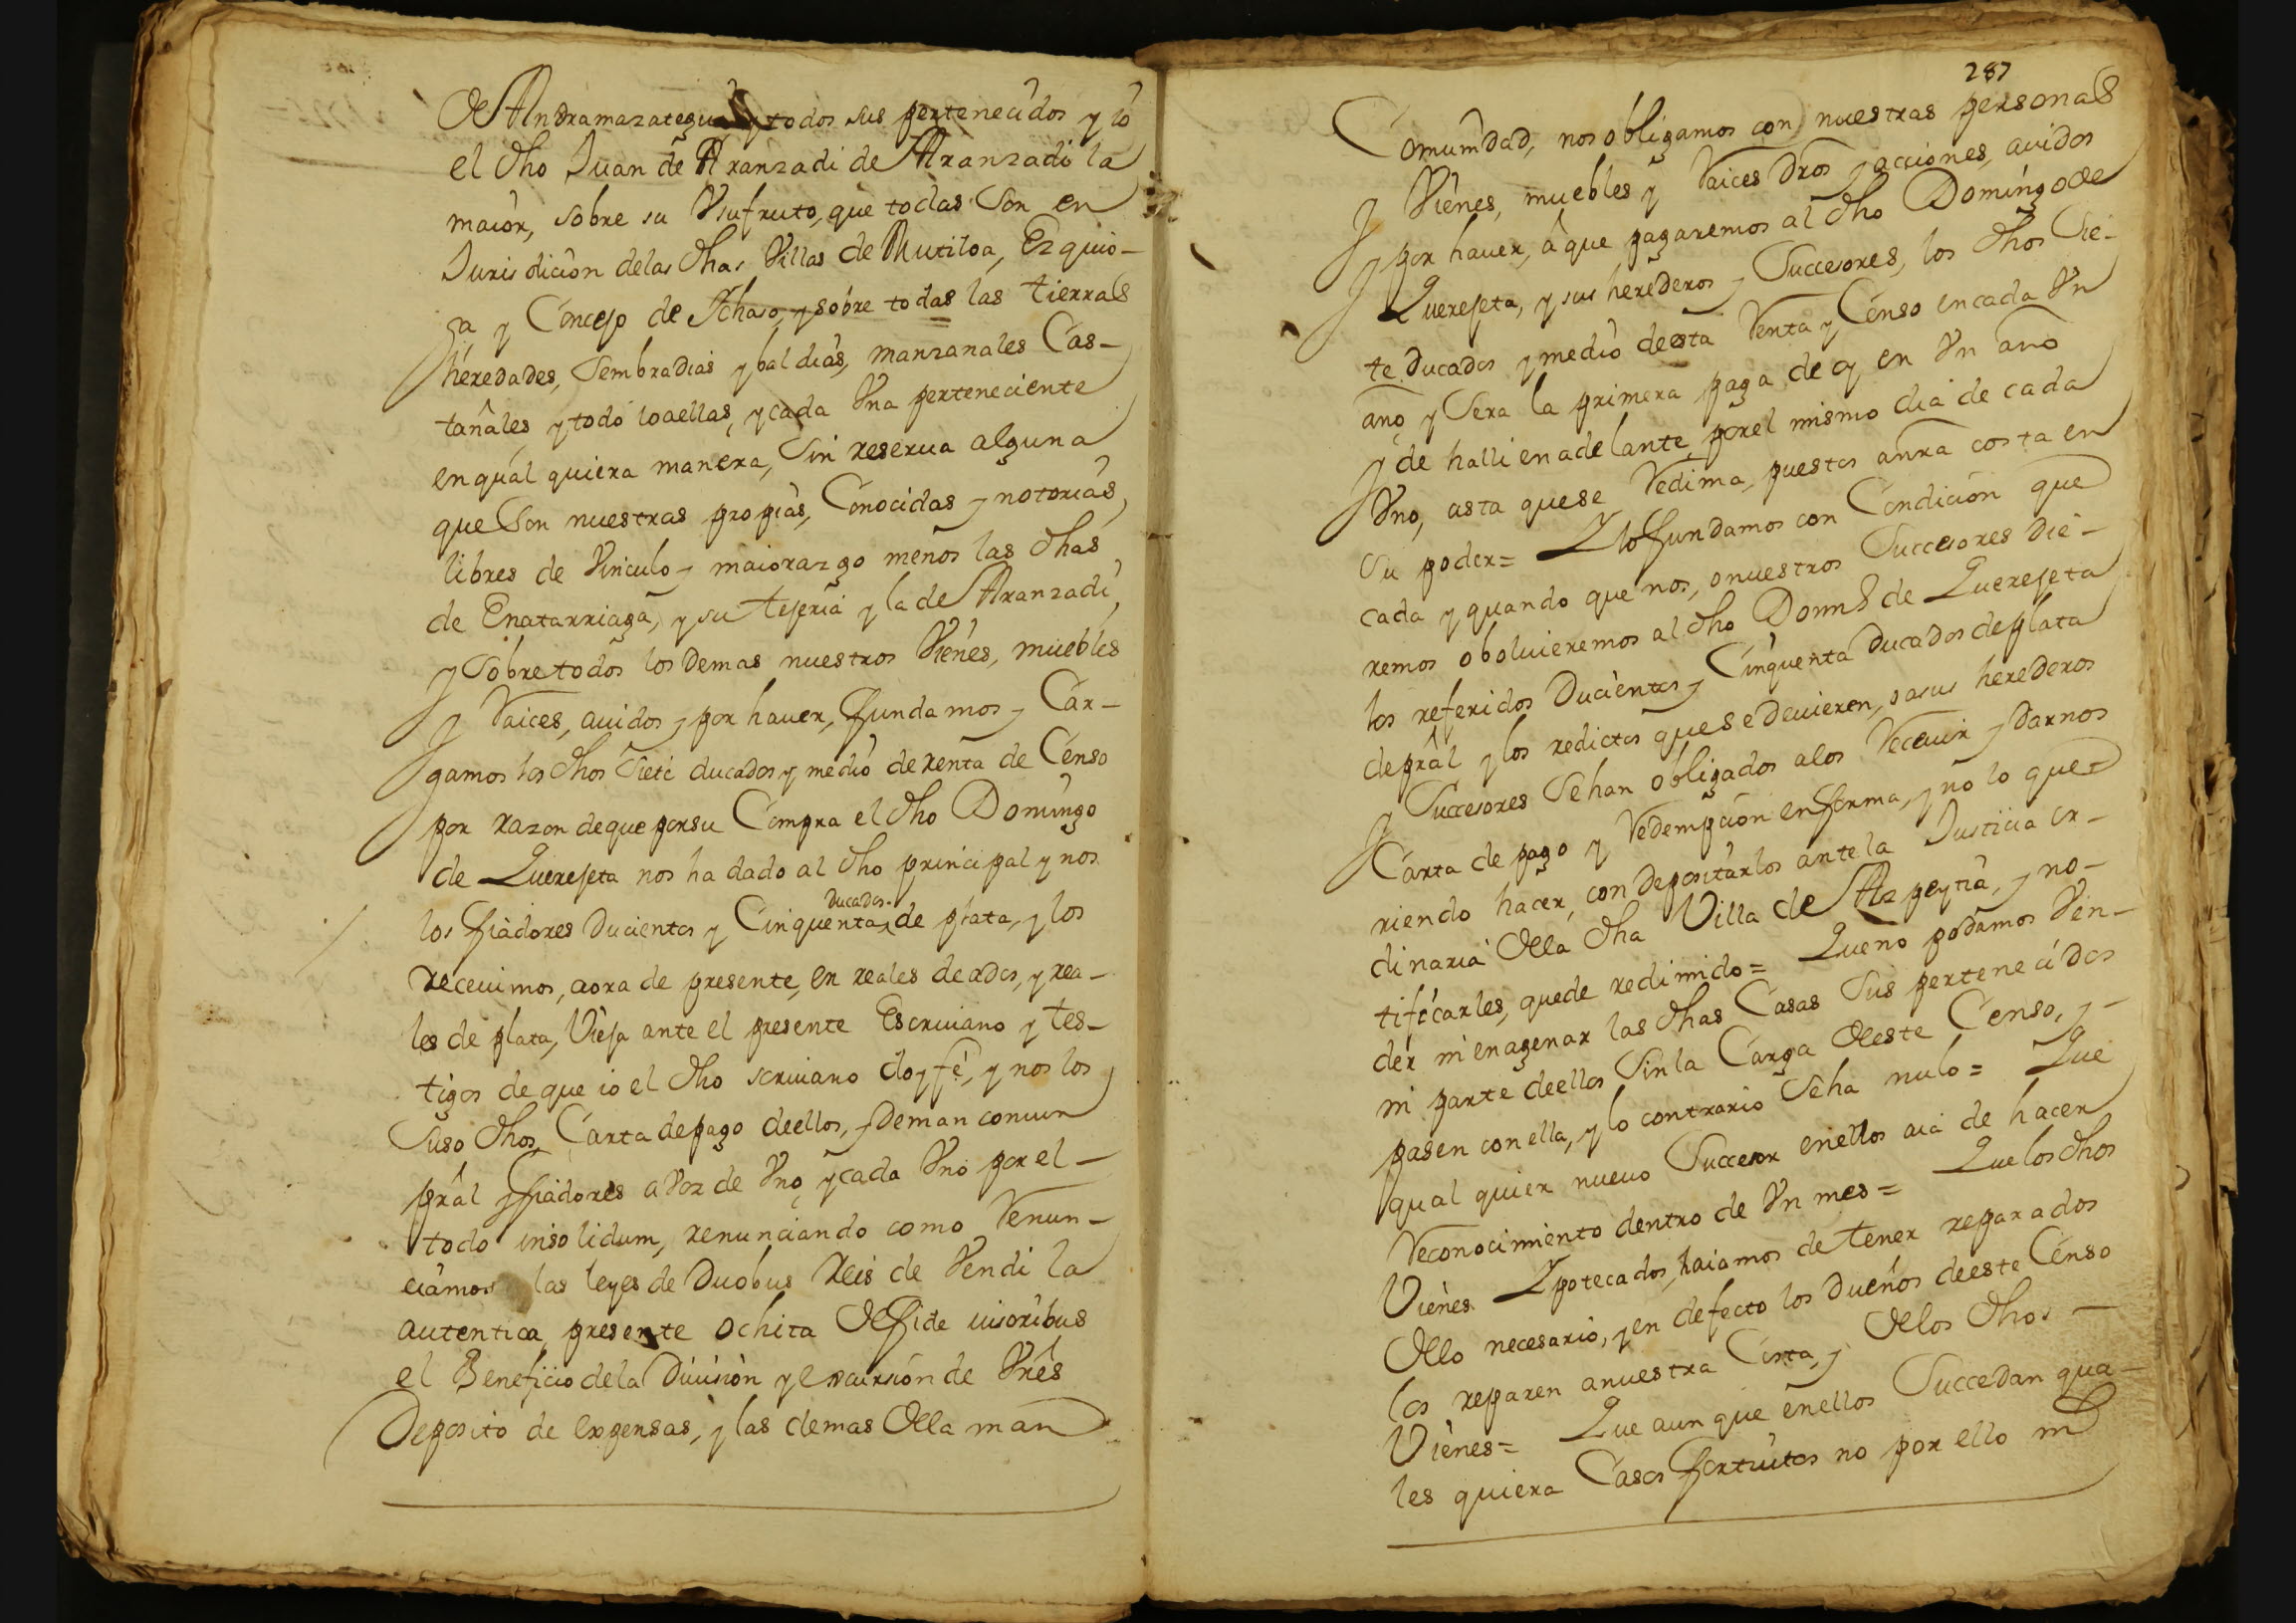 de Andramazategui, y todos sus pertenecidos y io
el dho Juan de Aranzadi de Aranzadi la
maior, sobre su Vsufruto, que todas Son en
Jurisdicion delas dhas Villas de Mutiloa, Ezquio-
ga y Concejo de Ichaso, y sobre todas las tierras
heredades, Sembradias y baldias, manzanales Cas-
tañales, y todo loaellas, y cada Vna perteneciente
enqual quiera manera, Sin reserua alguna
que Son nuestras propias, Conocidas y notorias,
libres de Vinculo y maiorazgo menos las dhas
de Enatarriaga, y su tejeria y la de Aranzadi,
y Sobre todos los demas nuestros Vienes, muebles
y Raices, auidos y por hauer, fundamos y Car-
gamos los dhos Siete ducados y medio de renta de Censo
por razon deque porsu Compra el dho Domingo
de Querejeta nos ha dado al dho principal y nos
los fiadores Ducientos y Cinquenta ducados de plata, y los
receuimos, aora de presente, en reales de ados, y rea-
les de plata, Vieja ante el presente Escriuano y tes-
tigos de que io el dho scriuano doy fe, y nos los
Suso dhos, Carta depago deellos, y Deman comun
prâl y fiadores a Voz de Vno y cada Vno por el-
todo insolidum, renunciando como Renun-
ciamos las leyes de Duobus Reis de Vendi la
autentica presente ochita de fide iusoribus
el Beneficio dela Diuision y excursion de Vres
Deposito de expensas, y las demas dela man
287
Comunidad, nos obligamos con nuestras personas
y Vienes, muebles y Raices dros y acciones, auidos
y por hauer, â que pagaremos al dho Domingo de
Querejeta, y sus herederos y Succesores, los dhos Sie-
te Ducados y medio deesta Venta y Censo en cada Vn
año y Sera la primera paga de oy en Vn año
y de halli en adelante, por el mismo dia de cada
Vno, asta quese Redima, puestos anrã costa en
su poder= Ylo fundamos con Condicion que
cada y quando que nos, onuestros Succesores die-
remos oboluieremos al dho Domgo de Querejeta
los referidos Ducientos y Cinquenta Ducados deplata
deprâl y los redictos quese Deuieren, y asus herederos
y Succesores Sehan obligados alos Receuir y Darnos
Carta de pago y Redempcion en forma, y no lo que-
riendo hacer, con Depositarlos antela Justicia or-
dinaria dela dha Villa de Azpeytia, y no-
tificarles, quede redimido= Queno podamos Ven-
der ni enagenar las dhas Casas Sus pertenecidos
ni parte deellos Sin la Carga deeste Censo, y-
pasen con ella, y lo contrario Seha nulo= Que
qual quier nueuo Succesor enellos aia de hacer
Reconocimiento dentro de Vn mes= Quelos dhos
Vienes Ypotecados, haiamos de tener reparados
delo necesario, y en defecto los Dueños deeste Censo
los reparen anuestra Costa, y delos dhos-
Vienes= Que aunque enellos Succedan qua-
les quiera Casos fortuitos no por ello ni